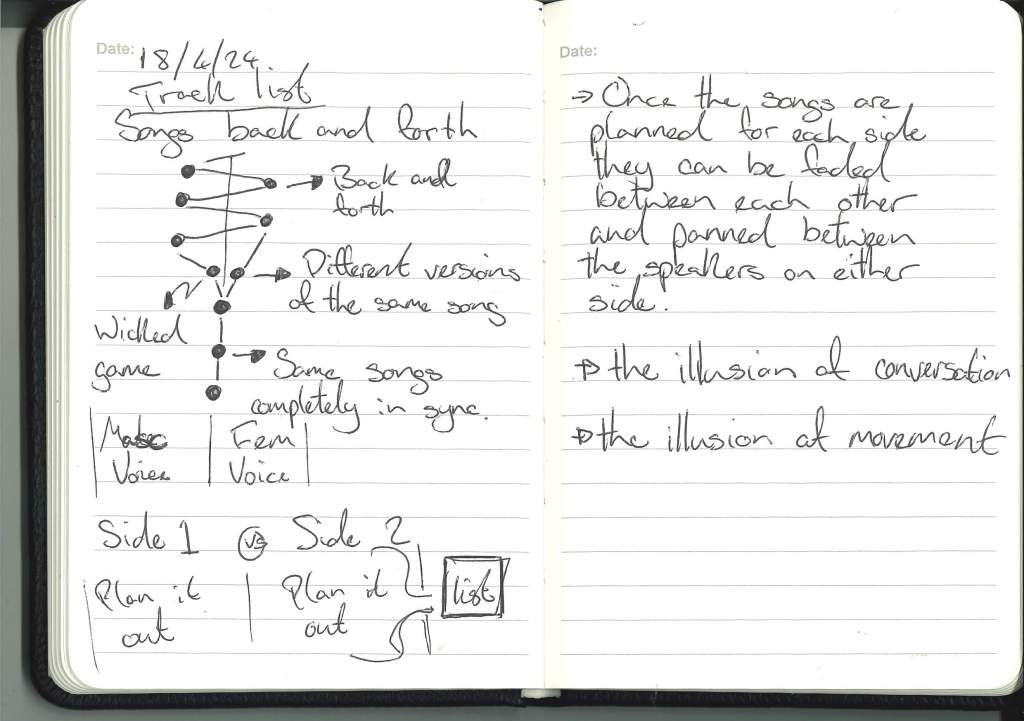 Date: 18/4/24.
Track list
Songs back and forth
Back and
forth
Different versions
of the same song
Wicked
game
Same songs
completely in sync.
Masc
Voice
Fem
Voice
Side 1 vs Side 2
Plan it
out
Plan it
out
list
Date:
→ Once the songs are
planned for each side
they can be faded
between each other
and panned between
the speakers on either
side.
→ the illusion of conversation
→ the illusion of movement